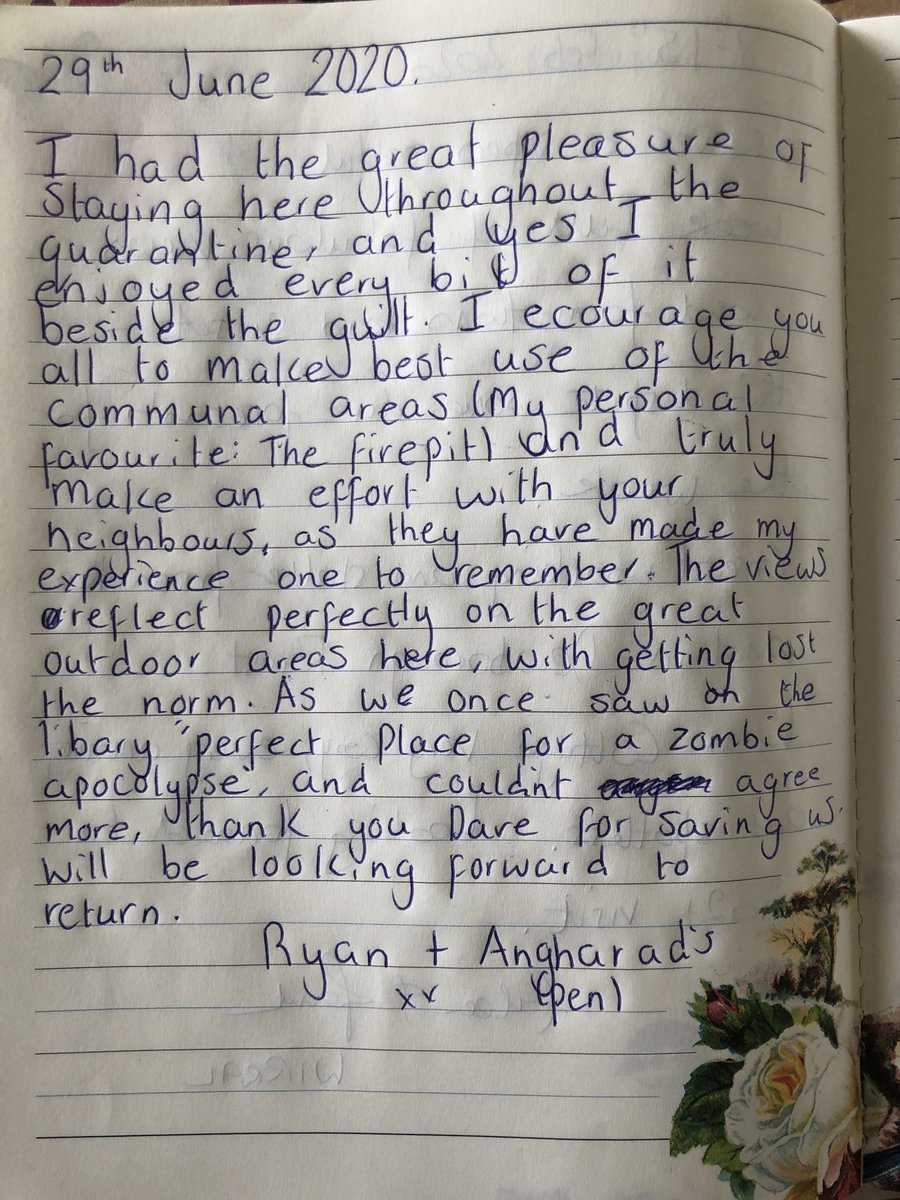 29th June 2020.
I had the great pleasure of
staying here throughout the
quarantine, and yes I
enjoyed every bit of it
beside the guilt. I ecourage you
all to make best use of the
communal areas (My personal
favourite: The firepit) and truly
make an effort with your
neighbours, as they have made my
experience one to remember. The views
reflect perfectly on the great
outdoor areas here, with getting lost
the norm. As we once saw on the
libary "perfect place for a zombie
apocolypse", and couldn't agree
more, thank you Dave for saving us.
Will be looking forward to
return.
Ryan + Angharad's
xx (pen)
WIRRAL